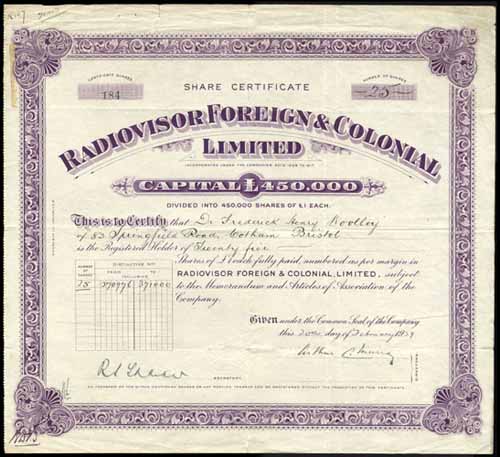 CERTIFICATE NUMBER
184
NUMBER OF SHARES
25
SHARE CERTIFICATE
RADIOVISOR FOREIGN & COLONIAL
LIMITED
INCORPORATED UNDER THE COMPANIES ACTS 1908 TO 1917
CAPITAL £450,000
DIVIDED INTO 450,000 SHARES OF £1 EACH.
This is to Certify that Dr. Frederick Henry Woolley
of 83 Springfield Road, Cotham Bristol
is the Registered Holder of Twenty five
Shares of £1 each fully paid, numbered as per margin in
RADIOVISOR FOREIGN & COLONIAL, LIMITED, subject
to the Memorandum and Articles of Association of the
Company.
NUMBER OF SHARES
DISTINCTIVE NOS
FROM
TO
INCLUSIVE
25 370976 371000
Given under the Common Seal of the Company
this day of February 1929
Arthur C Murray
SECRETARY